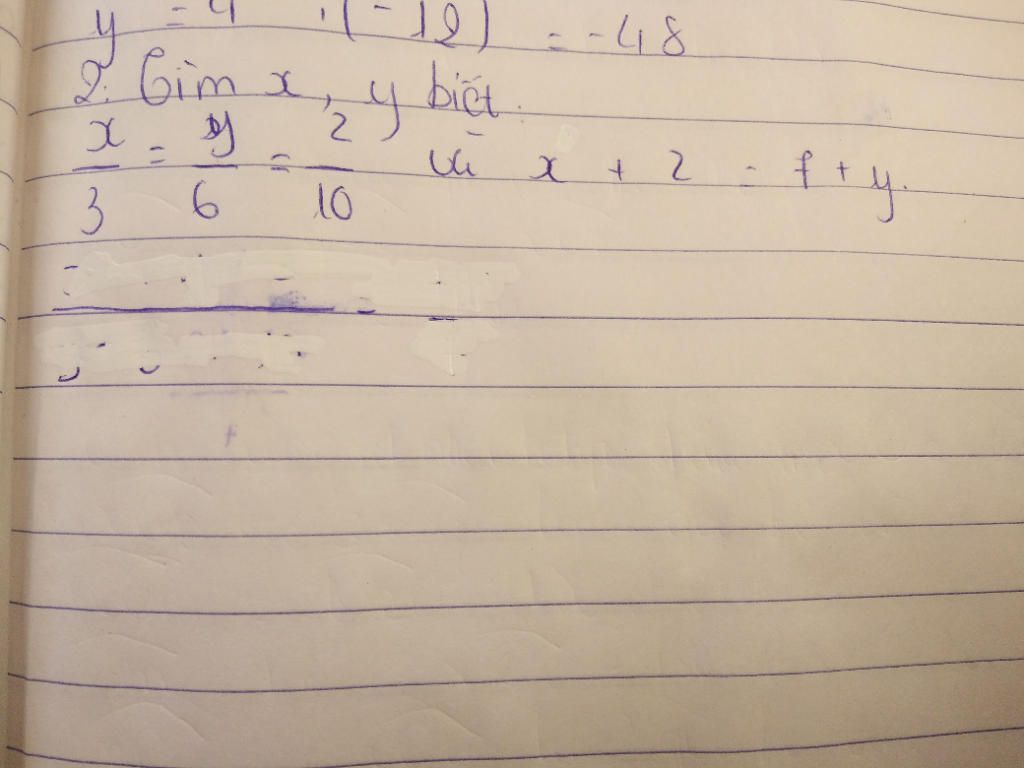 y = 4 . (-12) = -48
2. Tìm x, y biết.
x/3 = y/6 = z/10 và x + z = 7 + y.